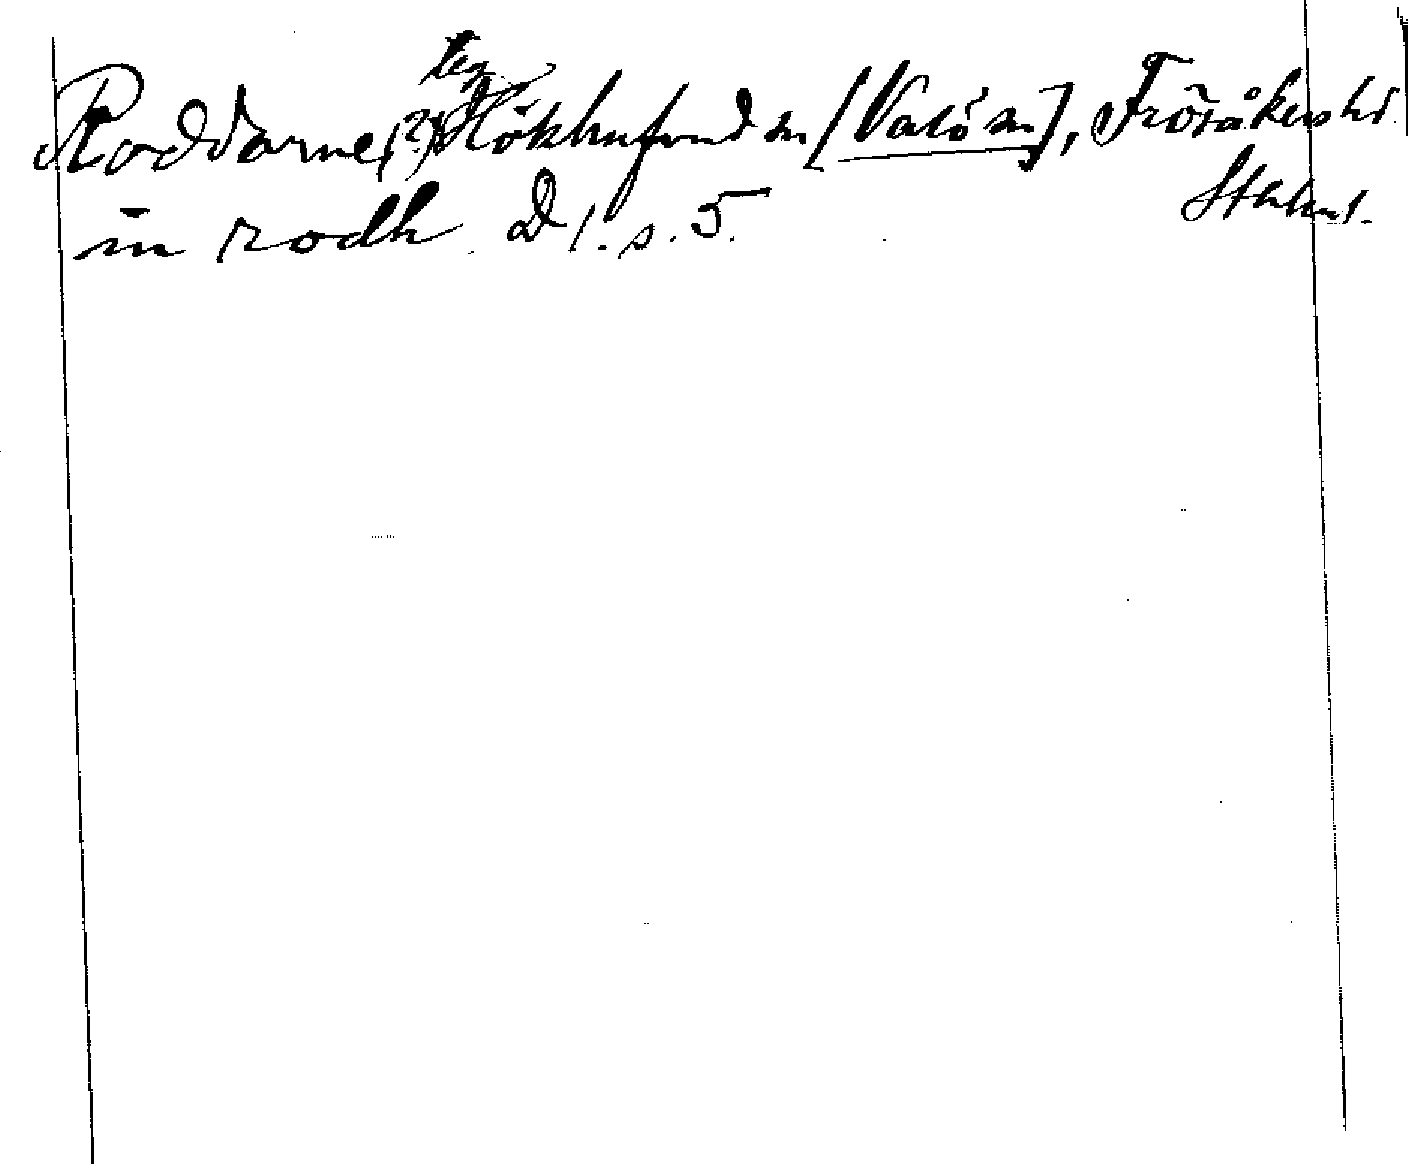 Roddarne (?) Hökhufvud sn [Valö sn], Frösåkers hd
Sthlms l.
in rodh D 1. s. 5.